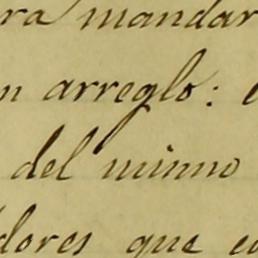 ra mandar
n arreglo:
del mismo
dores que